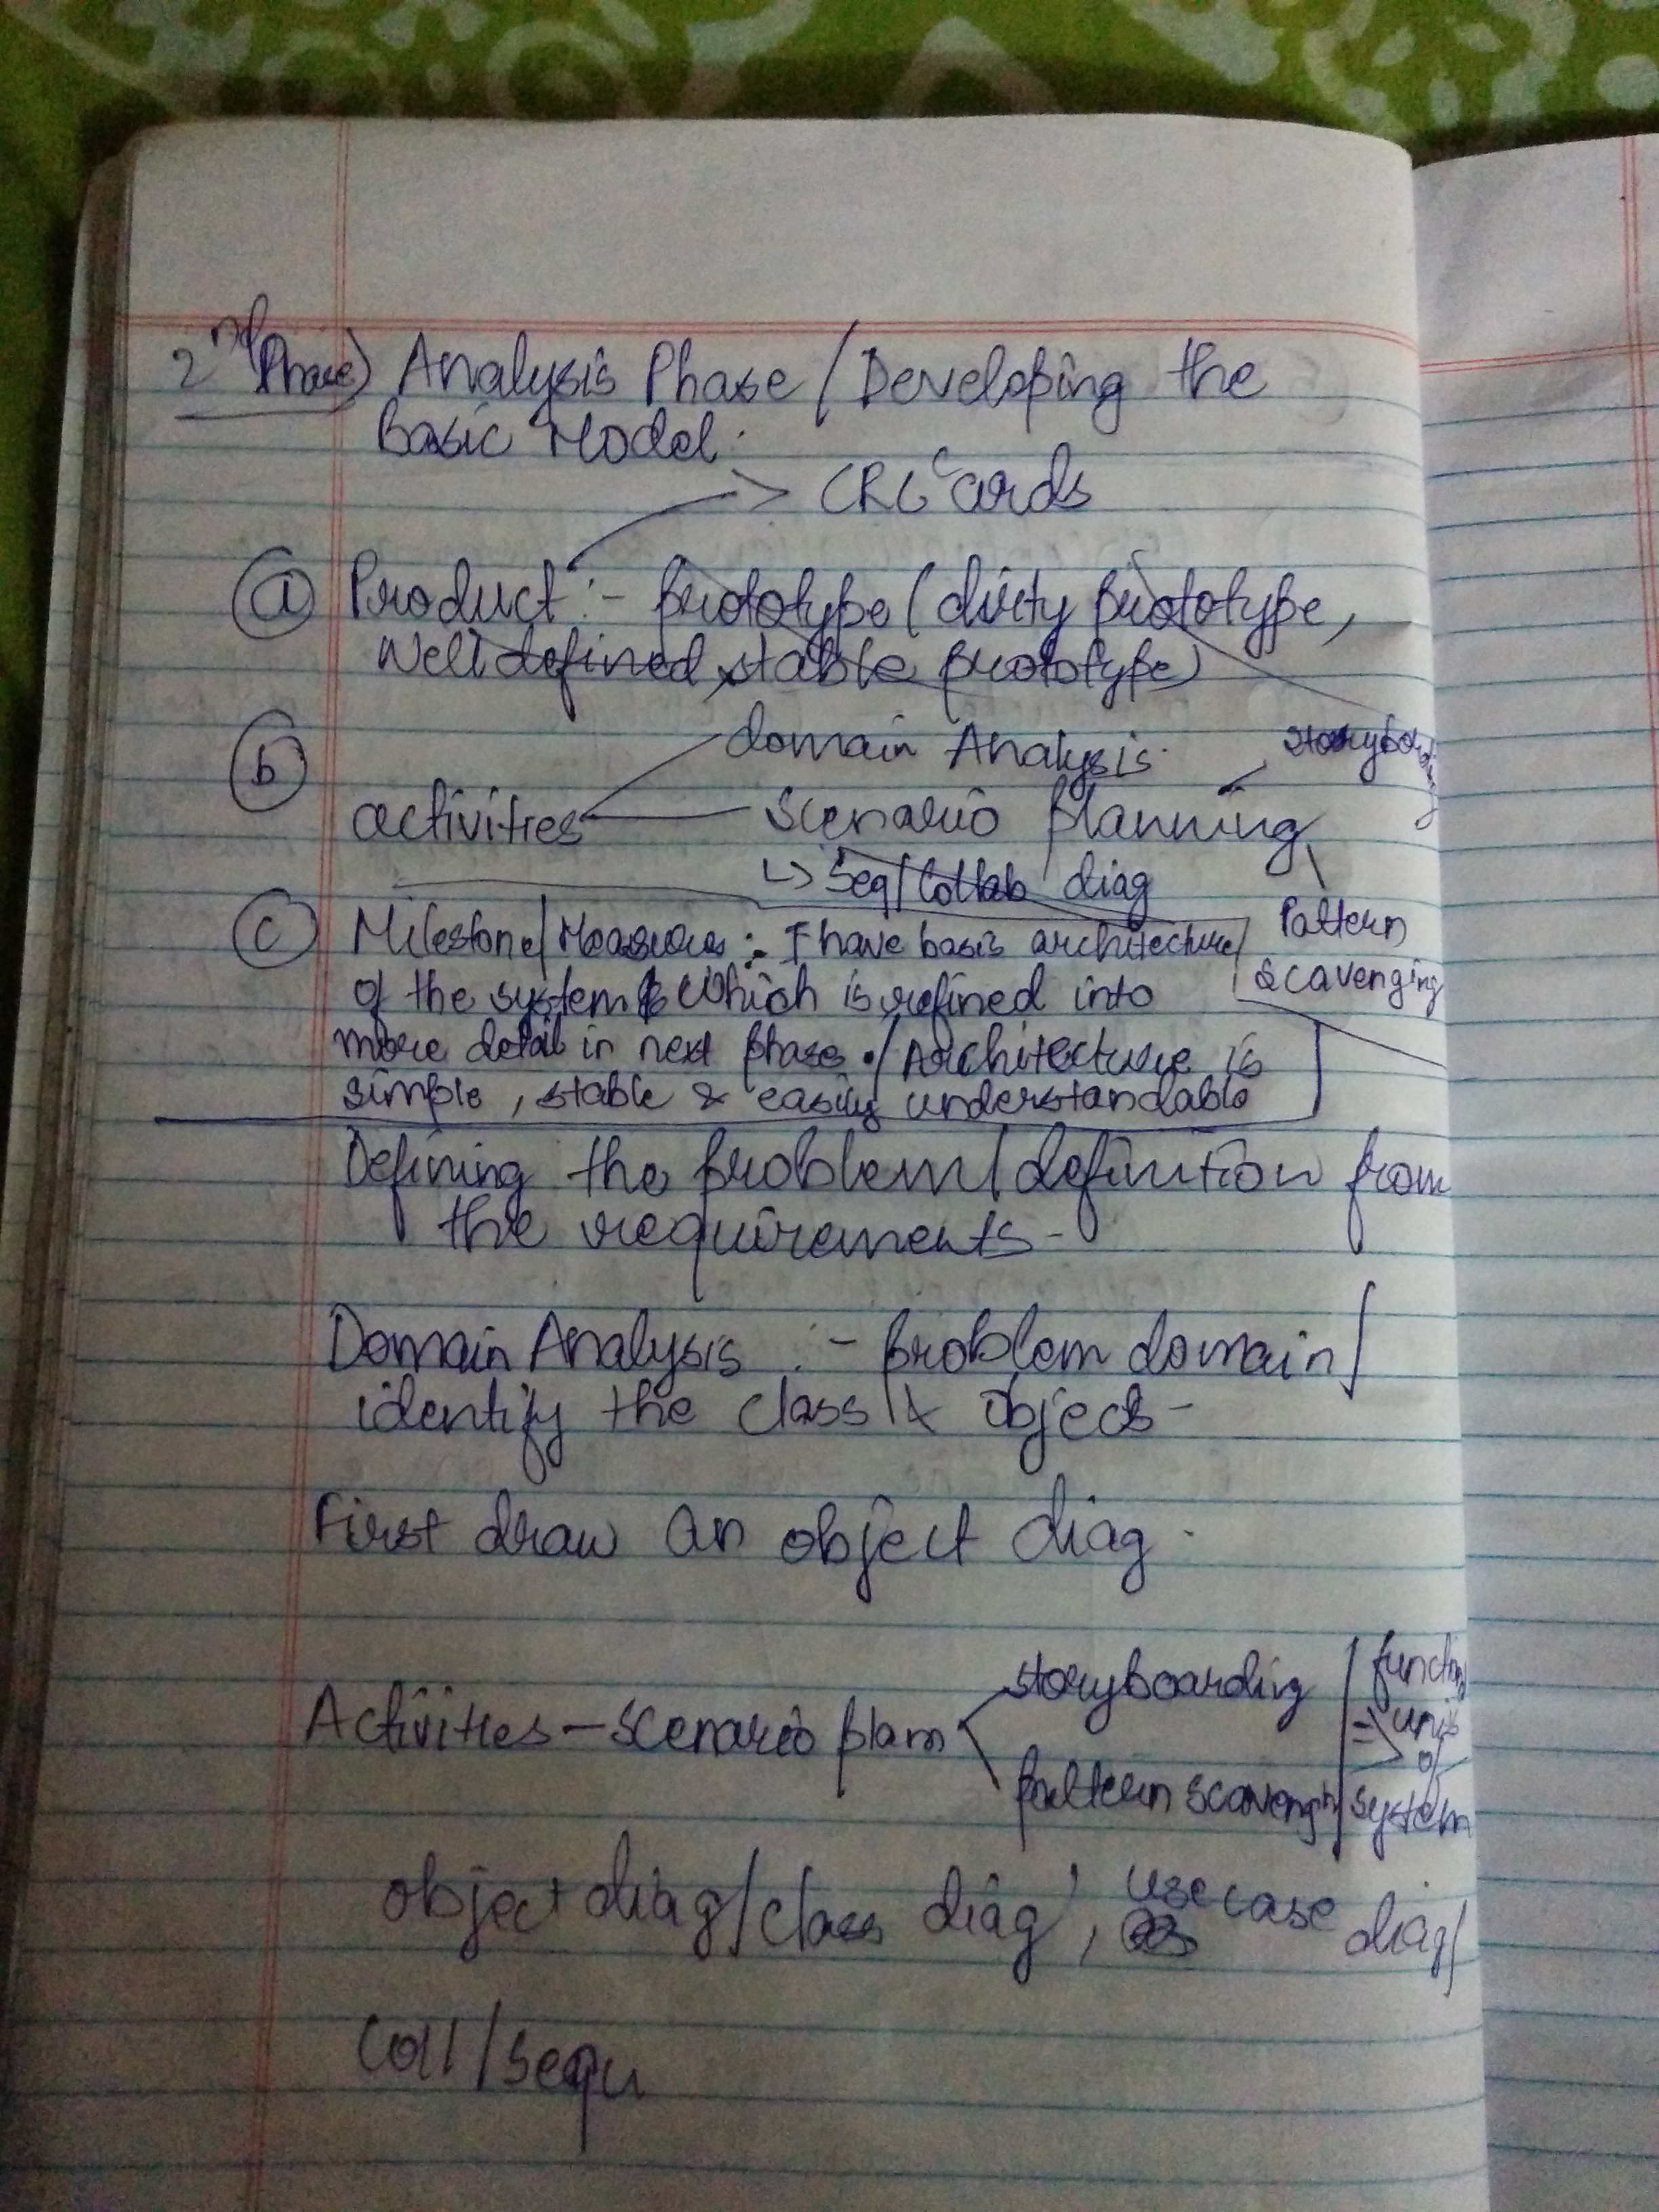 2nd Phase) Analysis Phase / Developing the
Basic Model:
> CRC cards
(a) Product :- prototype (dirty prototype,
Well defined, stable prototype)
(b) domain Analysis.
storyboarding
activities scenario planning
↳ Seq/Collab diag
Pattern
Scavenging
(c) Milestone/Measures :- I have basis architecture
of the system & which is refined into
more detail in next phase. / Architecture is
simple, stable & easily understandable
Defining the problem / definition from
the requirements -
Domain Analysis :- problem domain /
identify the class & objects -
First draw an object diag.
storyboarding / function
Activities - scenario plam => units
of
pattern scavengin / system
object diag / class diag, use case diag /
Coll / sequ